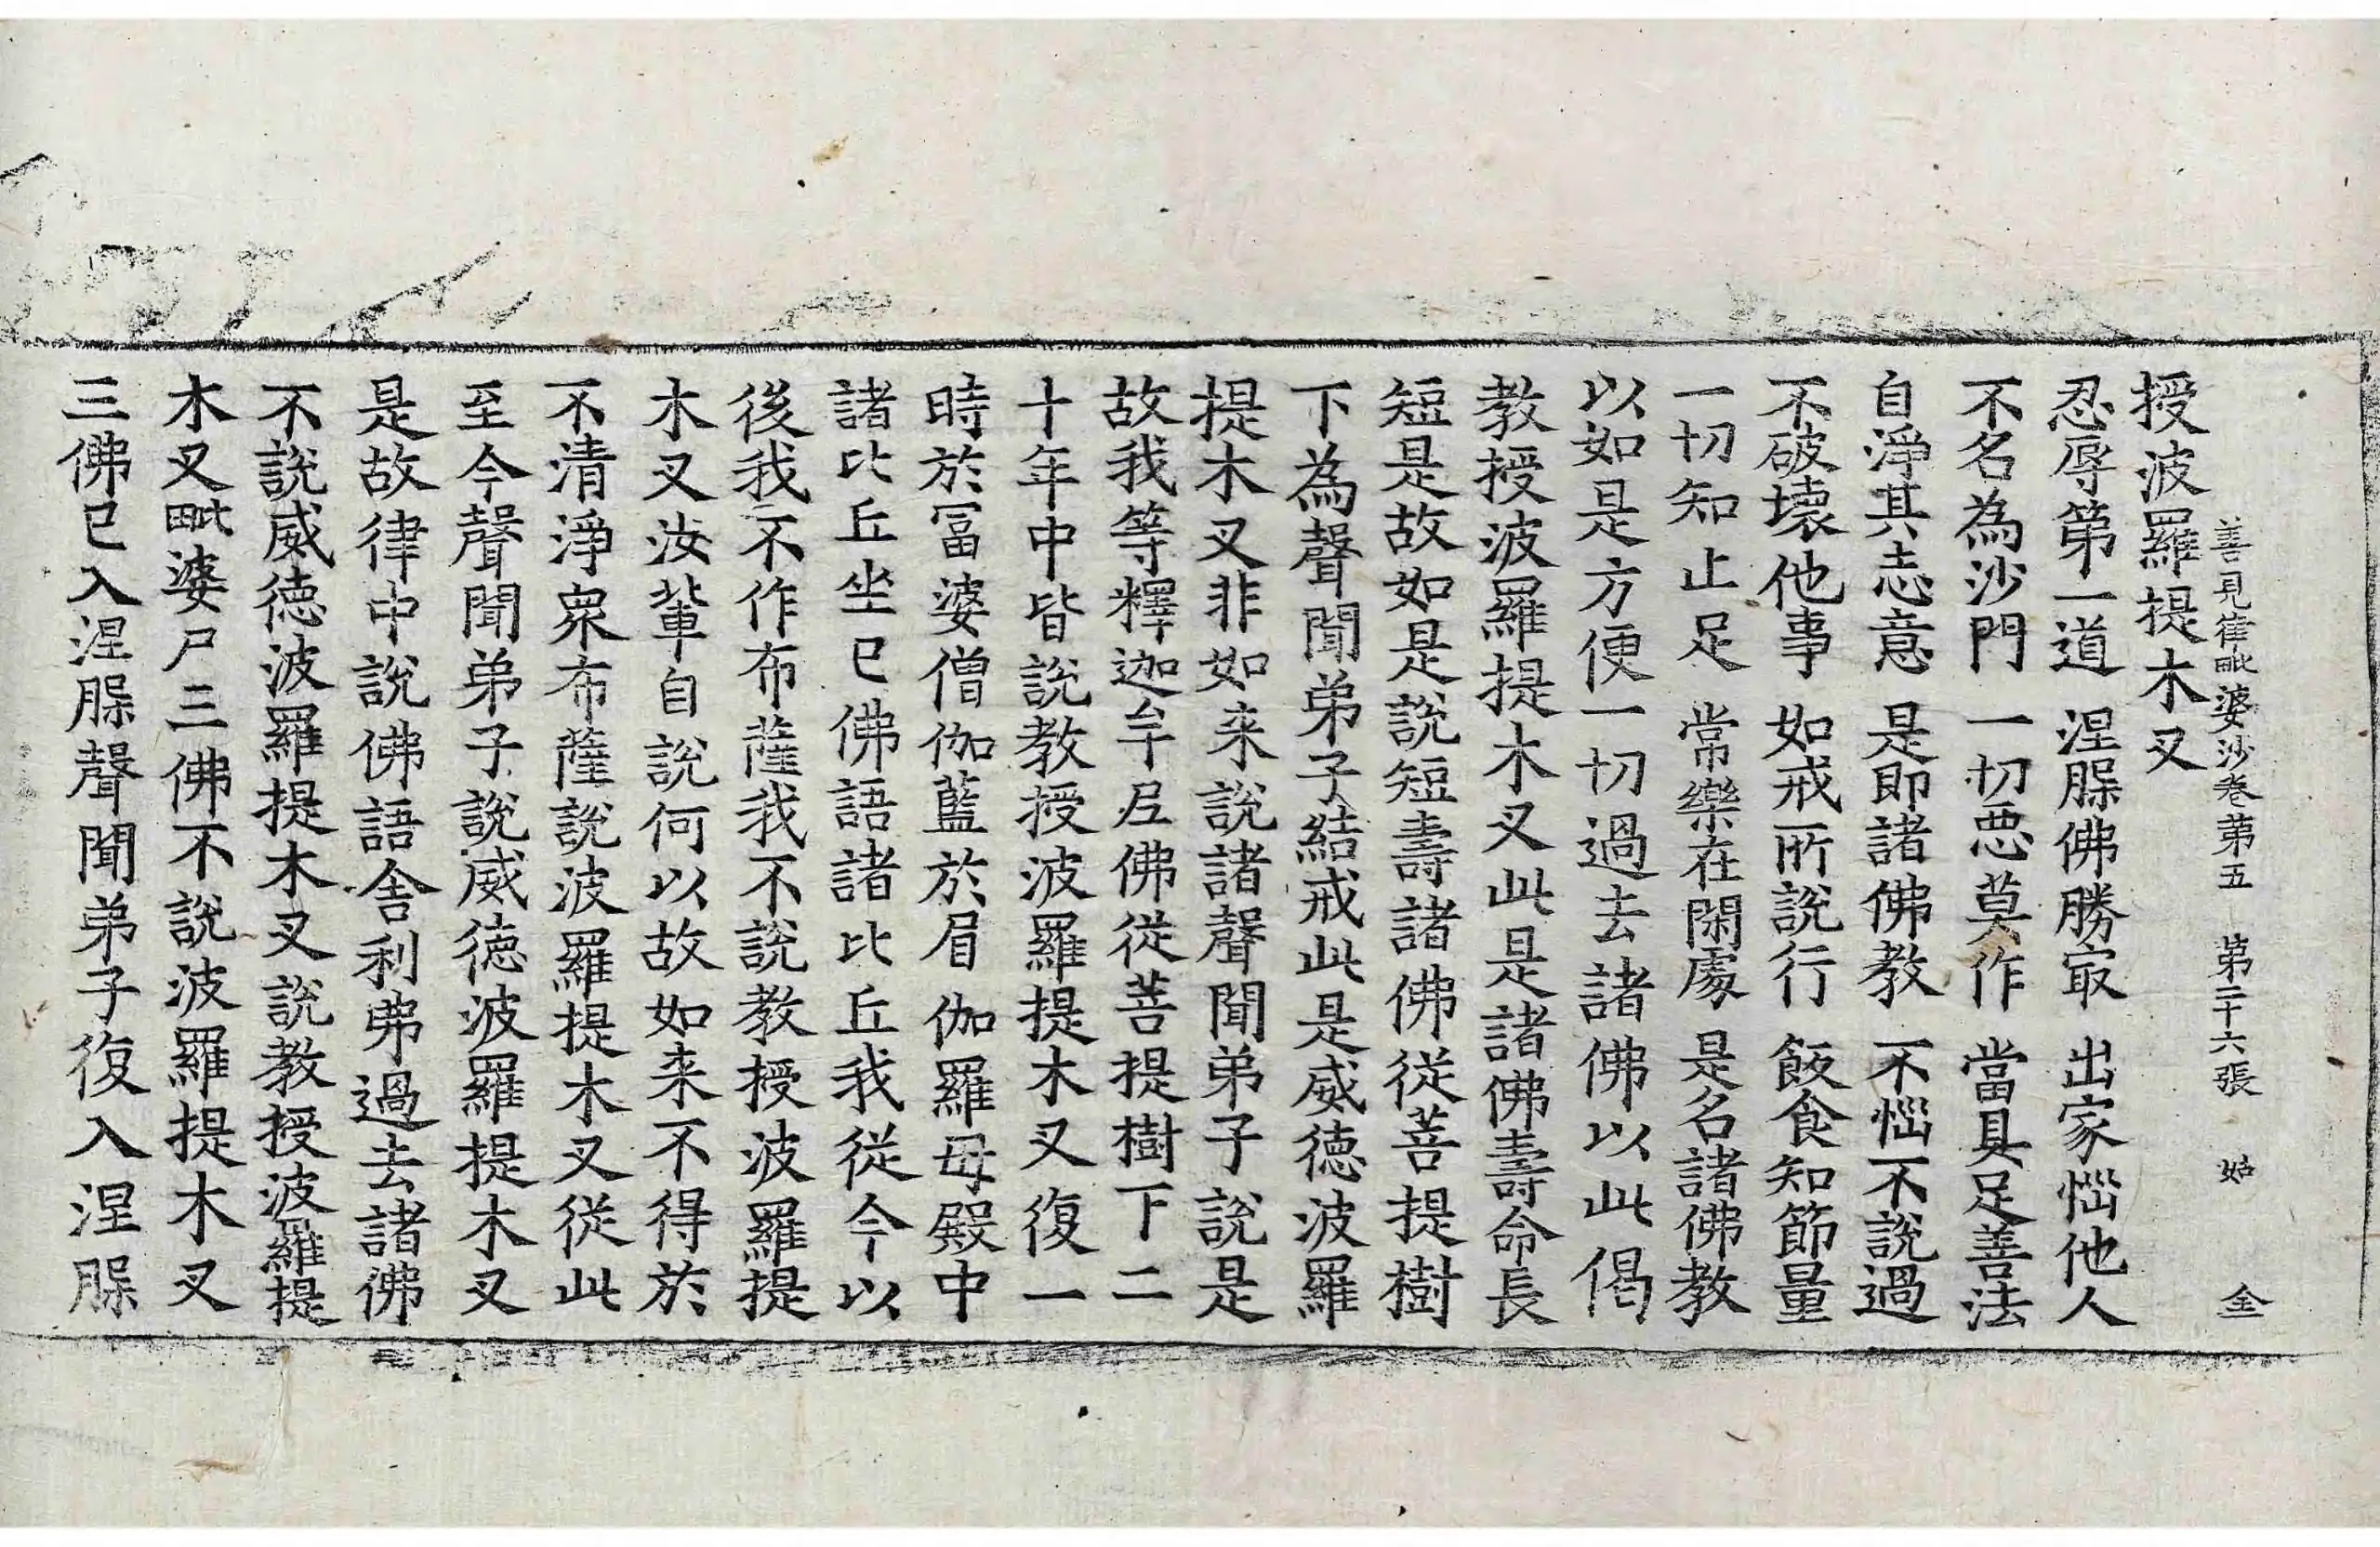 善見律毗婆沙卷第五　第二十六張　姑　金
授波羅提木叉
忍辱第一道　涅槃佛勝㝡　出家惱他人
不名為沙門　一切惡莫作　當具足善法
自淨其志意　是即諸佛教　不惱不說過
不破壞他事　如戒所說行　飯食知節量
一切知止足　常樂在閑處　是名諸佛教
以如是方便一切過去諸佛以此偈
教授波羅提木叉此是諸佛壽命長
短是故如是說短壽諸佛從菩提樹
下為聲聞弟子結戒此是威德波羅
提木叉非如来說諸聲聞弟子說是
故我等釋迦牟尼佛從菩提樹下二
十年中皆說教授波羅提木叉復一
時於冨婆僧伽藍於眉伽羅母殿中
諸比丘坐已佛語諸比丘我從今以
後我不作布薩我不說教授波羅提
木叉汝輩自說何以故如来不得於
不清淨衆布薩說波羅提木叉從此
至今聲聞弟子說威德波羅提木叉
是故律中說佛語舍利弗過去諸佛
不說威德波羅提木叉說教授波羅提
木叉毗婆尸三佛不說波羅提木叉
三佛已入涅槃聲聞弟子復入涅槃